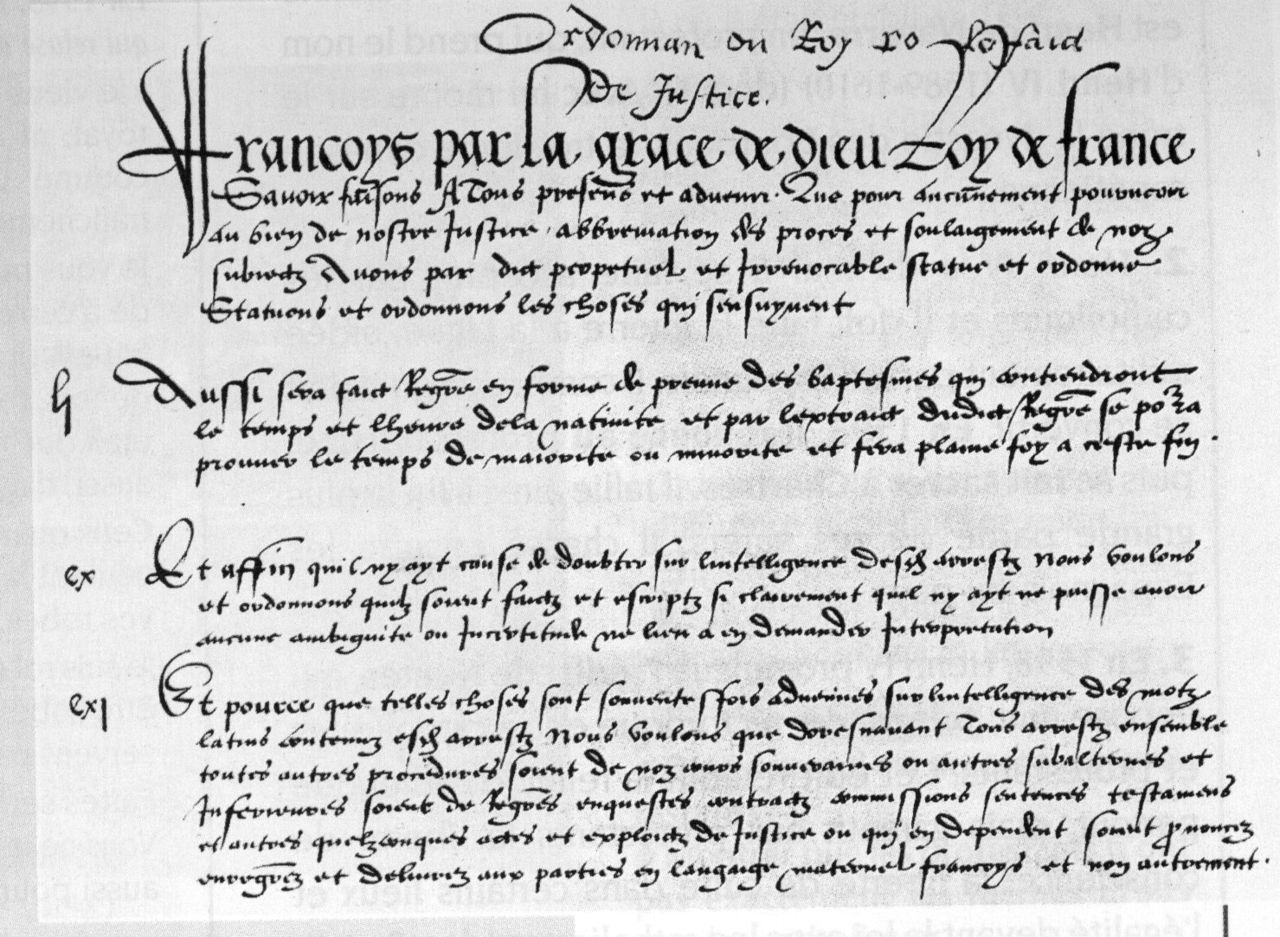 Ordonnan du Roy sur le faid
De Justice.
Francoys par la grace de dieu Roy de france
Savoir faisons A Tous presens et advenir. Que pour aucunement pourveoir
au bien de nostre Justice, abbreviation des proces et soulaigement de noz
subiectz Avons par dict perpetuel et Irrevocable statue et ordonne
Statuons et ordonnons les choses qui sensuyvent
lj Aussi sera faict Regre en forme de preuve des baptesmes qui contiendront
le temps et lheure dela nativite et par lextraict dudict Regre se pora
prouver le temps de maiorite ou minorite et fera plaine foy a ceste fin.
cx Et affin quil ny ayt cause de doubter sur lintelligence desd arrestz Nous voulons
et ordonnons quilz soient faictz et escriptz si clairement quil ny ayt ne puisse avoir
aucune ambiguite ou Incertitude ne lieu a en demander Interpretation
cxj Et pource que telles choses sont souventesffois advenues sur lintelligence des motz
latins contenuz esd arrestz Nous voulons que doresnavant Tous arrestz ensemble
toutes autres procedures soient de noz cours souveraines ou autres subalternes et
Inferieures soient de Regres enquestes contractz commissions sentences testamens
et autres quelzconques actes et exploictz de Justice ou qui en dependent soient pnoncez
enregrez et delivrez aux parties en langaige maternel francoys et non autrement.